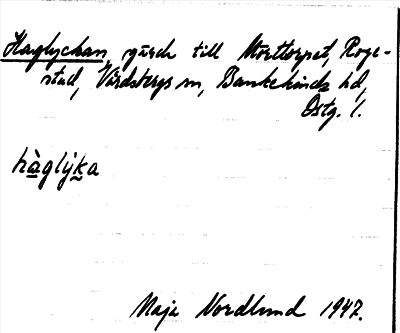 Haglyckan, gärde till Mörttorpet, Roge-
stad, Vårdsbergs sn, Bankekinds hd,
Östg. l.
hàglýka
Maja Nordlund 1947.